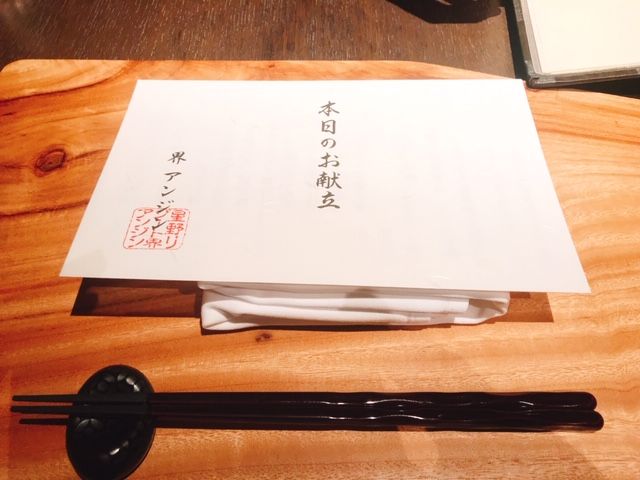 本日のお献立
界 アンジン
星野リ
ゾート界
アンジン